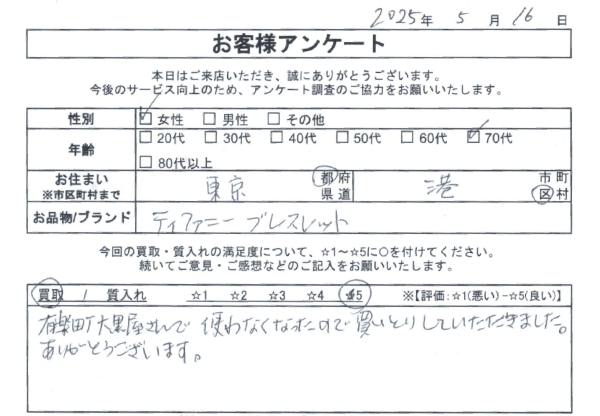 2025年 5月 16日
お客様アンケート
本日はご来店いただき、誠にありがとうございます。
今後のサービス向上のため、アンケート調査のご協力をお願いいたします。
性別 ☑ 女性 □ 男性 □ その他
年齢 □ 20代 □ 30代 □ 40代 □ 50代 □ 60代 ☑ 70代
□ 80代以上
お住まい ※市区町村まで 東京 都府県道 港 市町区村
お品物/ブランド ティファニー ブレスレット
今回の買取・質入れの満足度について、☆1～☆5に○を付けてください。
続いてご意見・ご感想などのご記入をお願いいたします。
買取 / 質入れ ☆1 ☆2 ☆3 ☆4 ☆5 ※【評価:☆1(悪い)－☆5(良い)】
有楽町大黒屋さんで 使わなくなったので 買いとりしていただきました。
ありがとうございます。